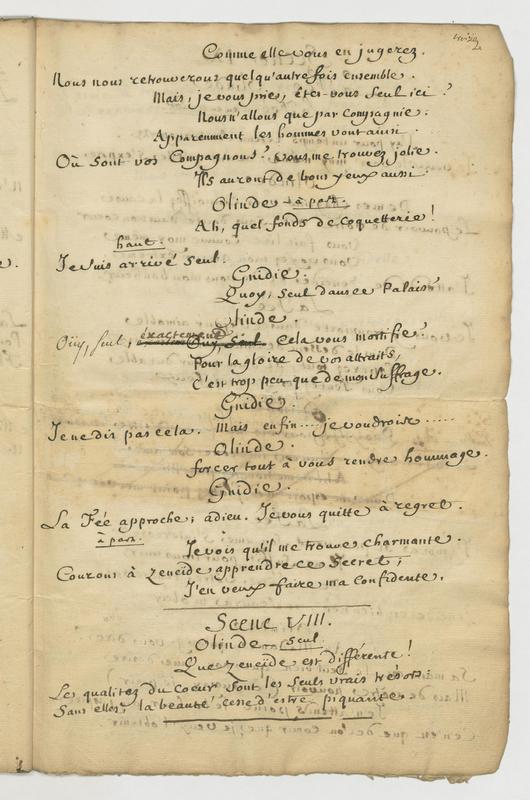 Comme elle vous en jugerez.
Nous nous retrouverons quelqu'autre fois ensemble.
Mais, je vous pries, êtes-vous seul ici ?
Nous n'allons que par Compagnie :
Apparemment les hommes vont ainsi.
Où sont vos Compagnons ? vous me trouvez jolie.
Ils auront de bons yeux aussi.
Olinde à part.
Ah, quel fonds de Coquetterie !
haut.
Je suis arrivé seul.
Gnidie.
Quoy, seul dans ce Palais ?
Olinde.
Oüy, seul, exactement Oüy, Seul. Cela vous mortifie ?
Pour la gloire de vos attraits,
C'est trop peu que de mon suffrage.
Gnidie.
Je ne dis pas cela. Mais enfin .... je voudrois .....
Olinde.
forcer tout à vous rendre hommage.
Gnidie.
La Fée approche ; adieu. Je vous quitte à regret.
à part.
Je vois qu'il me trouve charmante.
Courons à Zeneïde apprendre ce Secret ;
J'en veux faire ma Confidente.
Scene VIII.
Olinde seul.
Que Zeneïde est différente !
Les qualitez du Coeur sont les seuls vrais trésors :
Sans elles, la beauté cesse d'estre piquante.